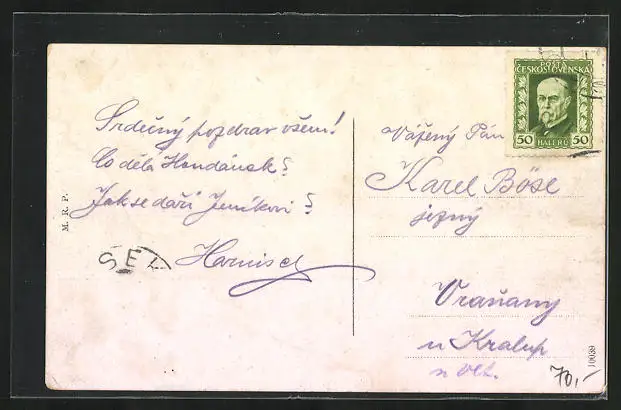 POŠTA
ČESKOSLOVENSKÁ
50 HALÉŘŮ 50
Srdečný pozdrav všem!
Co dělá Handának?
Jak se daří Jeníkovi?
Harnisch
M. R. P.
SEK
Vážený Pán
Karel Böse
jezný
Vraňany
u Kralup
n Vlt.
70,-
10039